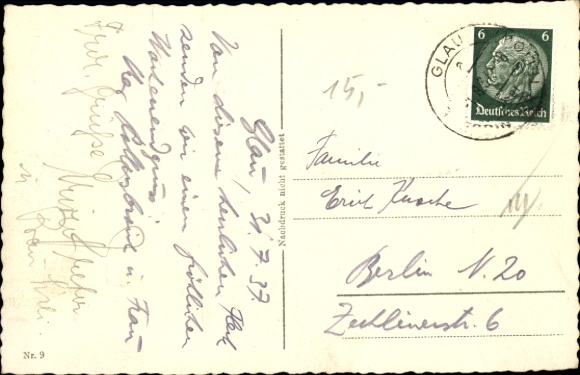 Glau, 31.7.37
Von diesem herrlichen Fleck
senden wir einen fröhlichen
Wochenendgruss
u. Frau
Grüße
u. Frau
Nr. 9
Nachdruck nicht gestattet
15,-
GLAU
6 6
Deutsches Reich
Familie
Erich Kusche
Berlin N. 20
Zechlinerstr. 6